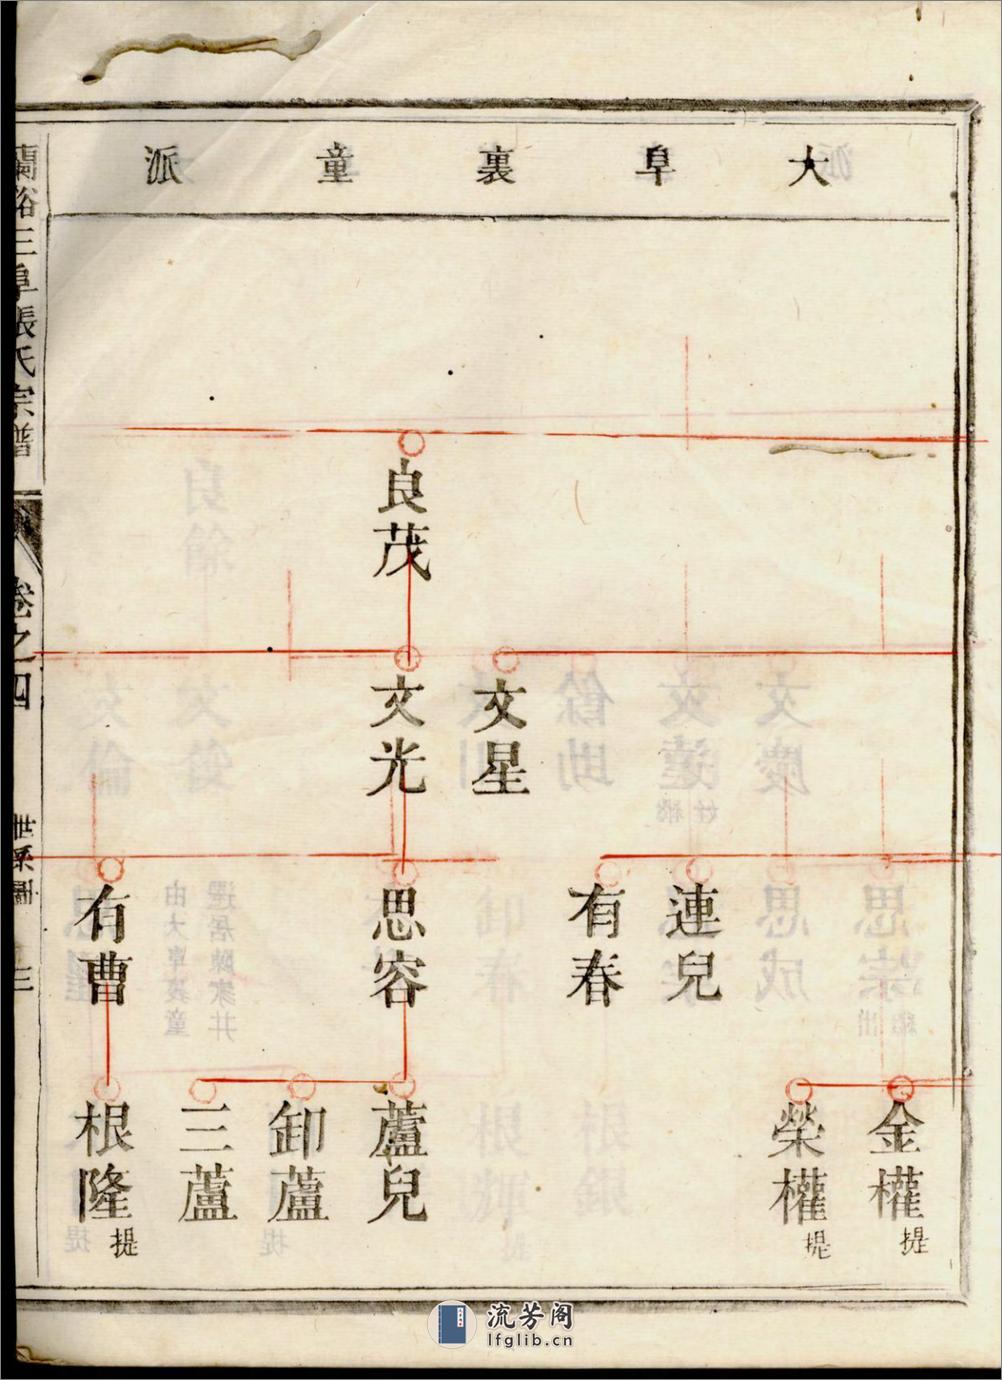 大阜裏童派
良茂
文星
文光
連兒
有春
思容
有曹
金權 提
榮權 提
蘆兒
卸蘆
三蘆
根隆 提
三阜張氏宗譜
卷之四
世系圖
三
流芳阁
lfglib.cn